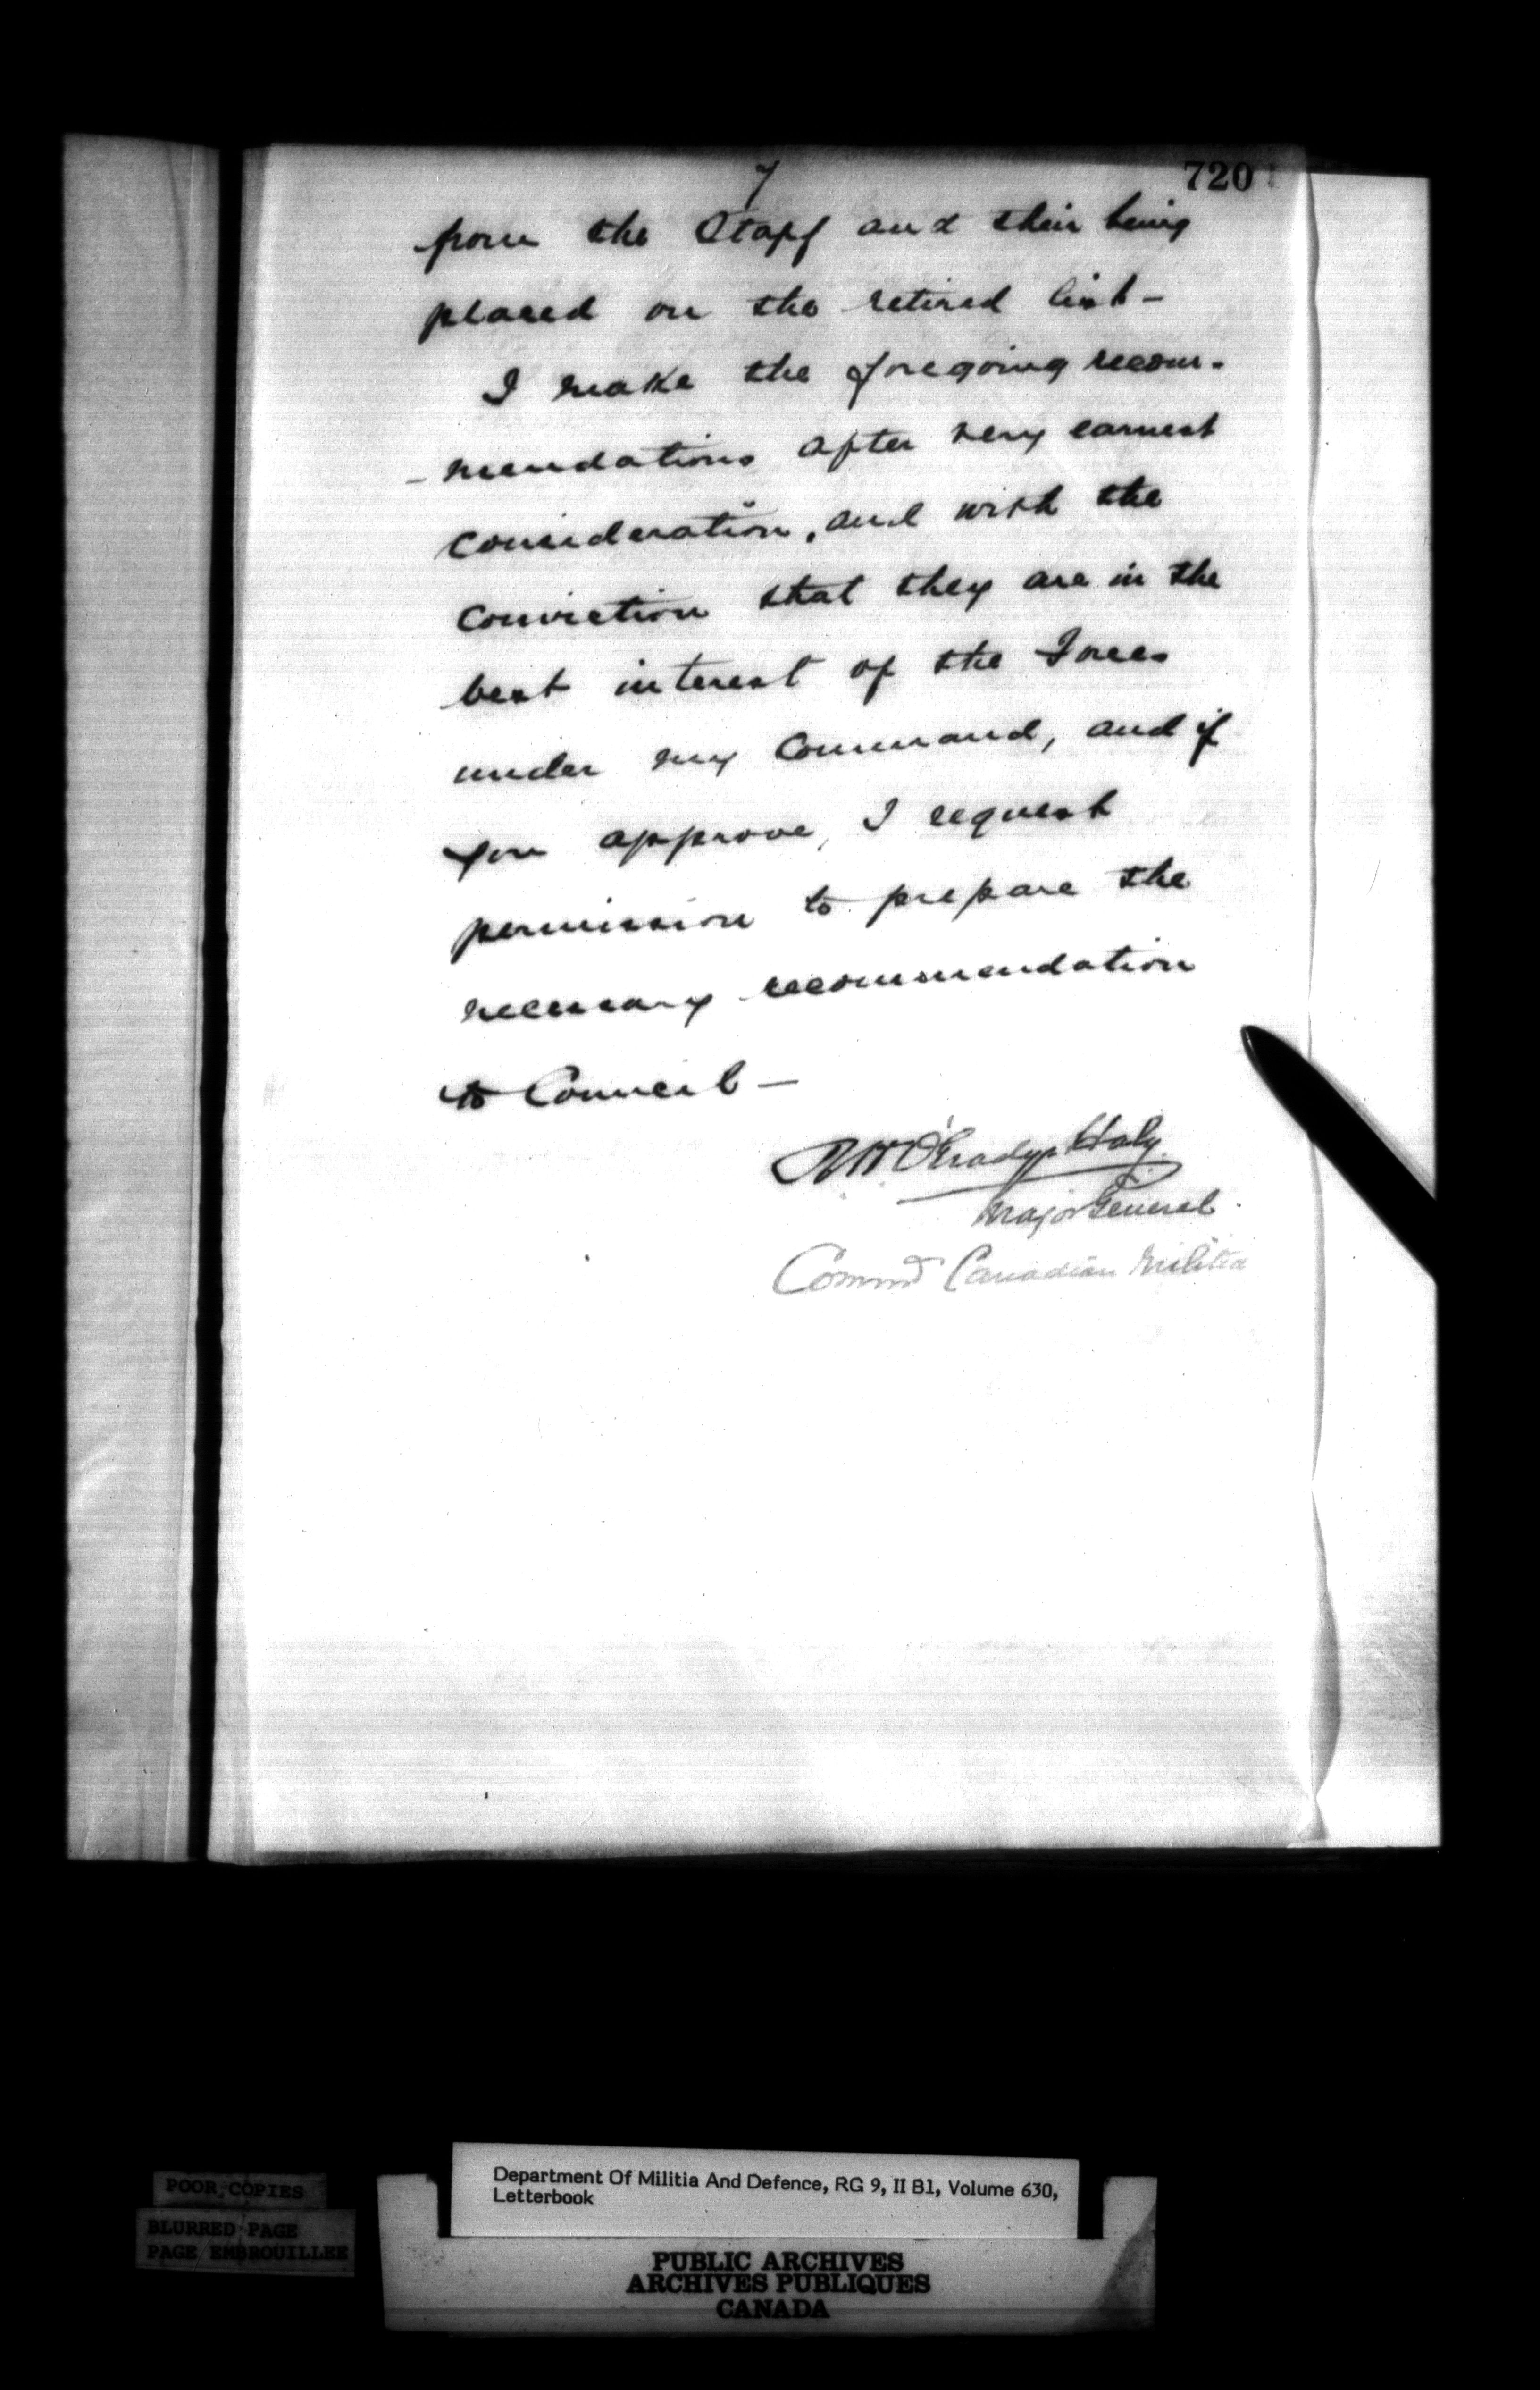 7
720
from the Staff and their being
placed on the retired list -
I make the foregoing recom-
- mendations after very earnest
consideration, and with the
conviction that they are in the
best interest of the Forces
under my Command, and if
you approve, I request
permission to prepare the
necessary recommendation
to Council —
RHO'Grady Haly
Major General.
Commd Canadian Militia
POOR COPIES
BLURRED PAGE
PAGE EMBROUILLEE
Department Of Militia And Defence, RG 9, II B1, Volume 630,
Letterbook
PUBLIC ARCHIVES
ARCHIVES PUBLIQUES
CANADA